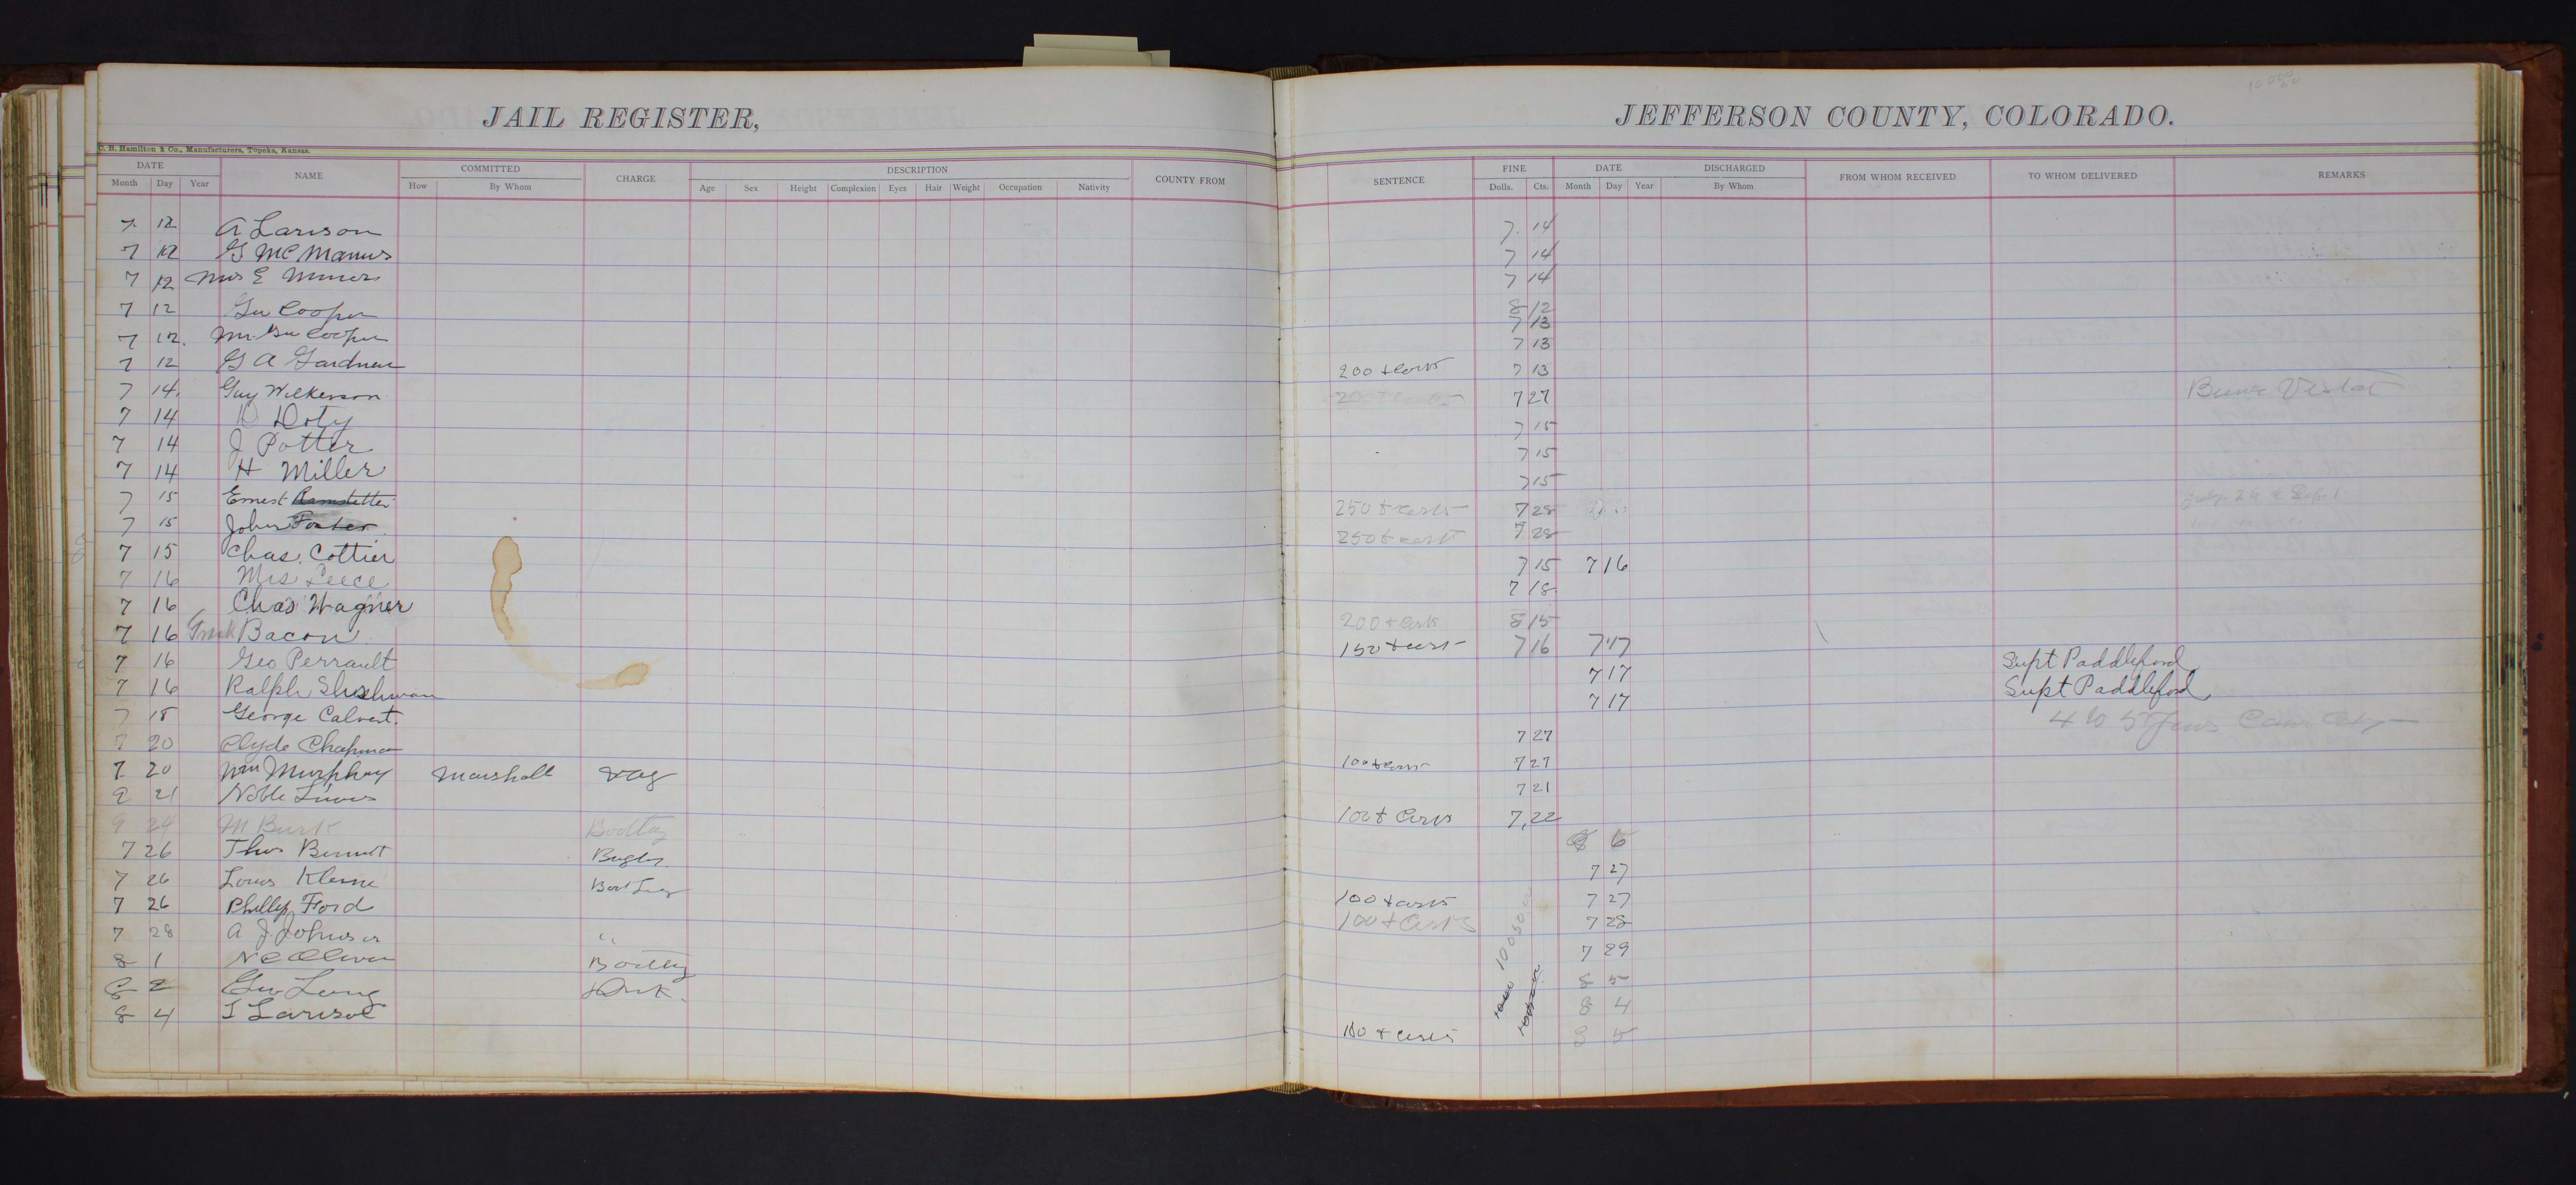 JAIL REGISTER,
C. B. Hamilton & Co., Manufacturers, Topeka, Kansas.
DATE NAME COMMITTED CHARGE DESCRIPTION COUNTY FROM
Month Day Year How By Whom Age Sex Height Complexion Eyes Hair Weight Occupation Nativity
7 12 A Larison
7 12 G Mc Manus
7 12 Mrs E
7 12 Geo Cooper
7 12. Mrs. Geo Cooper
7 12 G A Gardner
7 14. Guy Wilkerson
7 14 D Doty
7 14 J Potter
7 14 H Miller
7 15 Ernest Ramstetter
7 15 John Foster
7 15 Chas. Cottier
7 16 Mrs Leece
7 16 Chas Wagner
7 16 Frank Bacon
7 16 Geo Perrault
7 16 Ralph
7 18 George Calvert.
7 20 Clyde Chapman
7 20 Wm Murphey Marshall vag
9 21 Noble
9 24 M Burk
7 26 Thos Bennett
7 26 Louis Kleine
7 26 Phillip Ford
7 28 A J. Johnson "
8 1 N C Oliver
8 2 Geo Long
8 4 I
JEFFERSON COUNTY, COLORADO.
SENTENCE FINE DATE DISCHARGED FROM WHOM RECEIVED TO WHOM DELIVERED REMARKS
Dolls. Cts. Month Day Year By Whom
7. 14
7 14
7 14
8 12
7 13
7 13
200 + costs 7 13
7 27
7 15
7 15
7 15
250 + costs 7 28
250 + cost 7 28
7 15 7 16
7 18
200 + costs 8 15
150 + cost 7 16 7 17
7 17 Supt Paddleford
7 17 Supt Paddleford
7 27
100 + costs 7 27
7 21
100 + Costs 7,22
8 6
7 27
100 + costs 7 27
100 + Costs 7 28
7 29
8 5
8 4
100 + costs 8 5